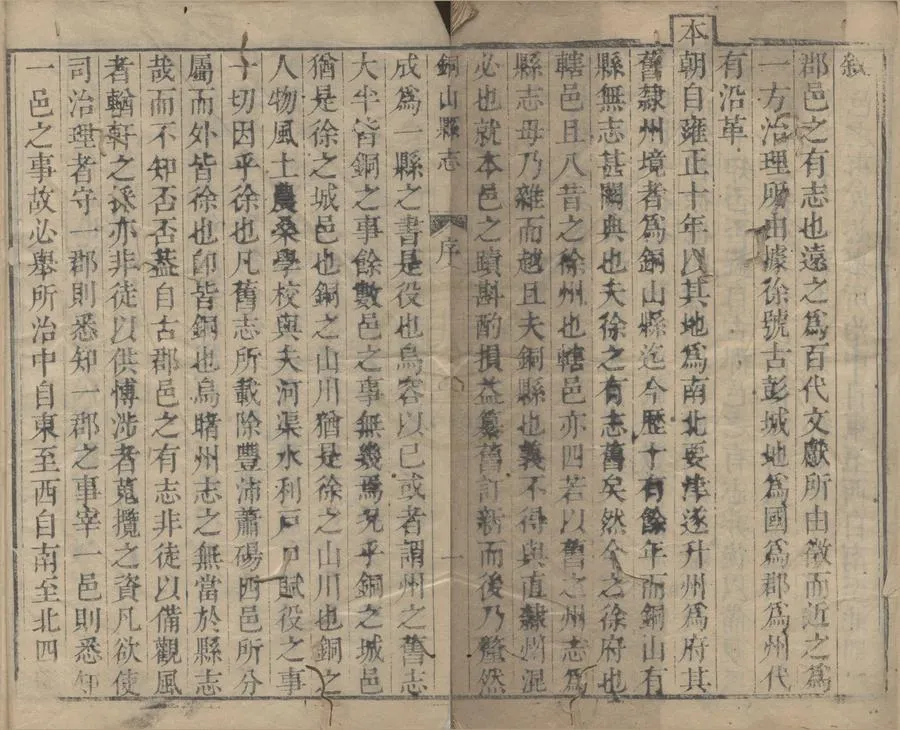 叙
郡邑之有志也遠之為百代文獻所由徵而近之為
一方治理所由據徐號古彭城地為國為郡為州代
有沿革
本朝自雍正十年以其地為南北要津遂升州為府其
舊隸州境者為銅山縣迄今歷十有餘年而銅山有
縣無志甚闕典也夫徐之有志舊矣然今之徐府也
轄邑且八昔之徐州也轄邑亦四若以舊之州志為
縣志毋乃雜而越且夫銅縣也義不得與直隸州混
必也就本邑之蹟斟酌損益纂舊訂新而後乃釐然
銅山縣志 序 一
成為一縣之書是役也烏容以已或者謂州之舊志
大半皆銅之事餘數邑之事無幾焉况乎銅之城邑
猶是徐之城邑也銅之山川猶是徐之山川也銅之
人物風土農桑學校與夫河渠水利戸口賦役之事
十切因乎徐也凡舊志所載除豐沛蕭碭四邑所分
屬而外皆徐也卽皆銅也烏睹州志之無當於縣志
哉而不知否否葢自古郡邑之有志非徒以備觀風
者輶軒之採亦非徒以供博涉者蒐攬之資凡欲使
司治理者守一郡則悉知一郡之事宰一邑則悉知
一邑之事故必舉所治中自東至西自南至北四